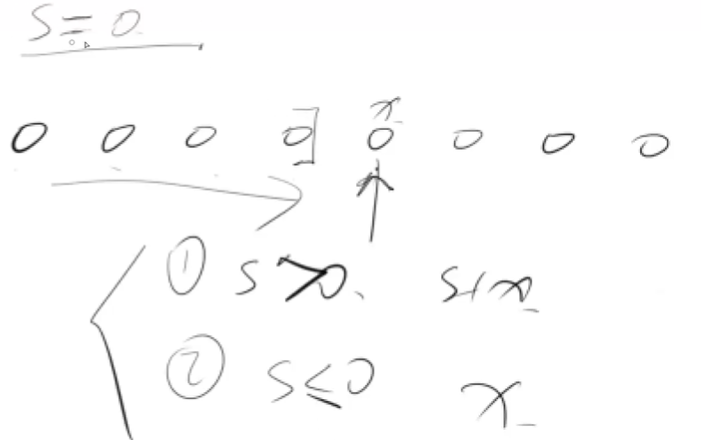 S = 0
x
0 0 0 0] 0 0 0 0
① S > 0. S+x
② S ≤ 0 x